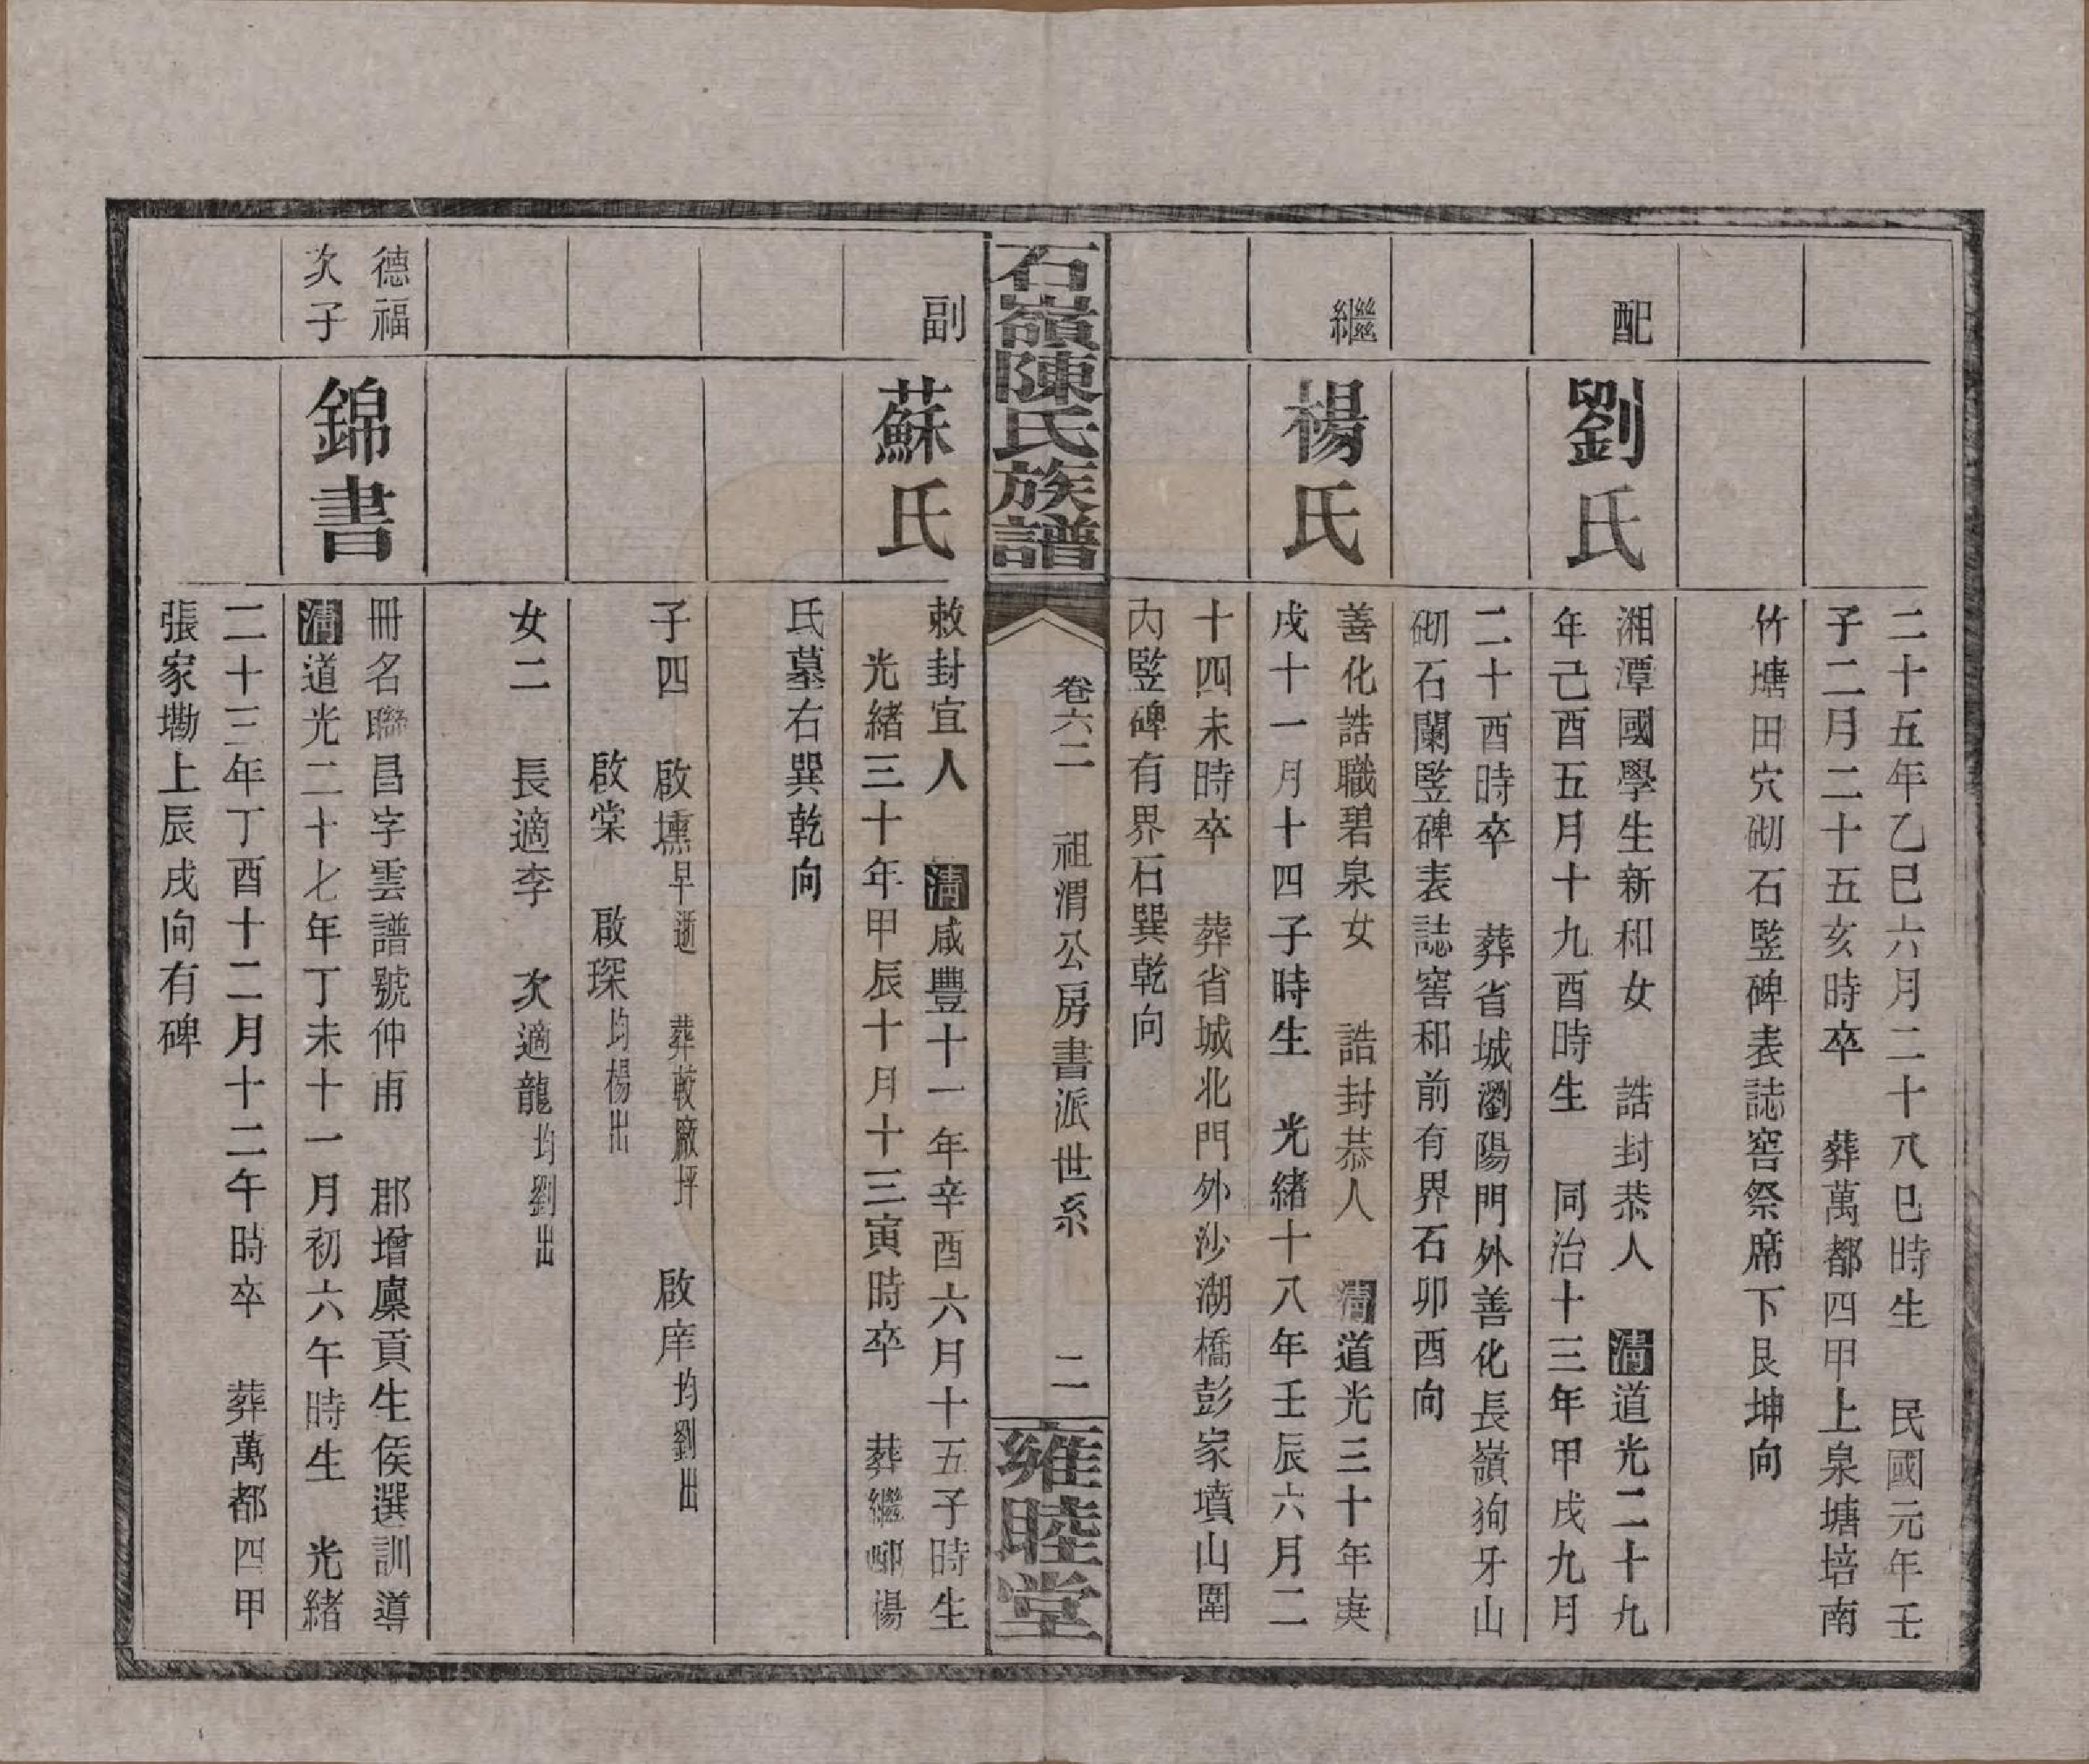 二十五年乙巳六月二十八巳時生　民國元年壬
子二月二十五亥時卒　葬萬都四甲上泉塘培南
竹塘田穴砌石竪碑表誌窖祭席下艮坤向
配
劉氏
湘潭國學生新和女　誥封恭人　清道光二十九
年己酉五月十九酉時生　同治十三年甲戌九月
二十酉時卒　葬省城瀏陽門外善化長嶺狗牙山
砌石闌竪碑表誌窖和前有界石卯酉向
繼
楊氏
善化誥職碧泉女　誥封恭人　清道光三十年庚
戌十一月十四子時生　光緒十八年壬辰六月二
十四未時卒　葬省城北門外沙湖橋彭家墳山圍
內竪碑有界石巽乾向
石嶺陳氏族譜
卷六二　祖渭公房書派世系　二
雍睦堂
副
蘇氏
敕封宜人　清咸豐十一年辛酉六月十五子時生
光緒三十年甲辰十月十三寅時卒　葬繼𡖖楊
氏墓右巽乾向
子四　啟壎早逝　葬較廠坪　啟庠均劉出
啟棠　啟琛均楊出
女二　長適李　次適龍均劉出
德福
次子
錦書
冊名聯昌字雲譜號仲甫　郡增廩貢生侯選訓導
清道光二十七年丁未十一月初六午時生　光緒
二十三年丁酉十二月十二午時卒　葬萬都四甲
張家塅上辰戌向有碑